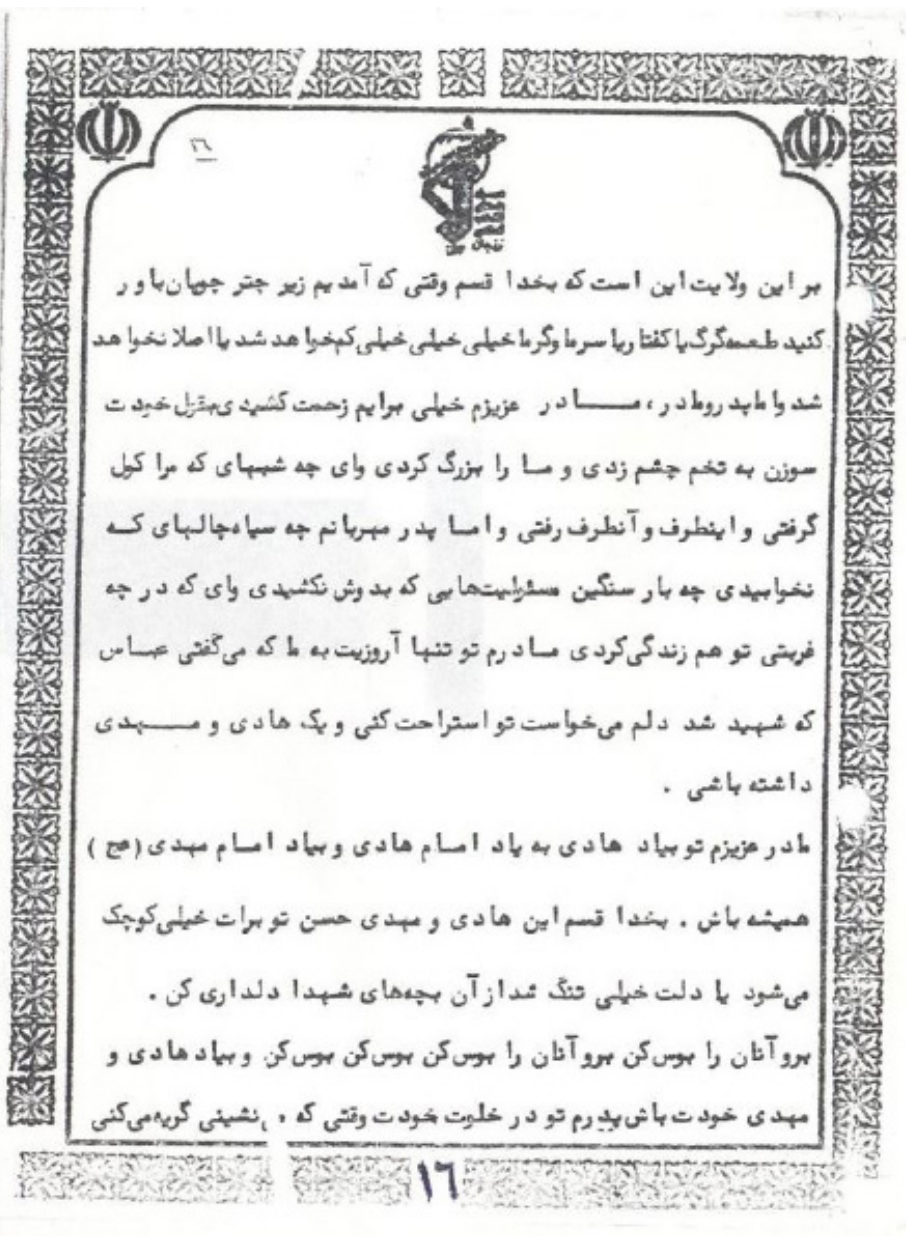 ۱٦
بر این ولایت این است که بخدا قسم وقتی که آمدیم زیر چتر چوپان باور
کنید طعمه گرگ یا کفتار یا سرما وگرما خیلی خیلی خیلی کم خواهد شد یا اصلا نخواهد
شد واما پدر ومادر ، مــــادر عزیزم خیلی برایم زحمت کشیدی بقول خودت
سوزن به تخم چشم زدی و ما را بزرگ کردی وای چه شبهای که مرا کول
گرفتی و اینطرف و آنطرف رفتی و اما پدر مهربانم چه سیاه چالهای که
نخوابیدی چه بار سنگین مسئولیتهایی که بدوش نکشیدی وای که در چه
غربتی تو هم زندگی کردی مادرم تو تنها آروزیت به ما که می‌گفتی عباس
که شهید شد دلم می‌خواست تو استراحت کنی و یک هادی و مــهدی
داشته باشی .
مادر عزیزم تو بیاد هادی به یاد امام هادی و بیاد امام مهدی (عج )
همیشه باش . بخدا قسم این هادی و مهدی حسن تو برات خیلی کوچک
می‌شود یا دلت خیلی تنگ شد از آن بچه‌های شهدا دلداری کن .
برو آنان را بوس کن برو آنان را بوس کن بوس کن بوس کن و بیاد هادی و
مهدی خودت باش پدرم تو در خلوت خودت وقتی که نشینی گریه می‌کنی
۱٦